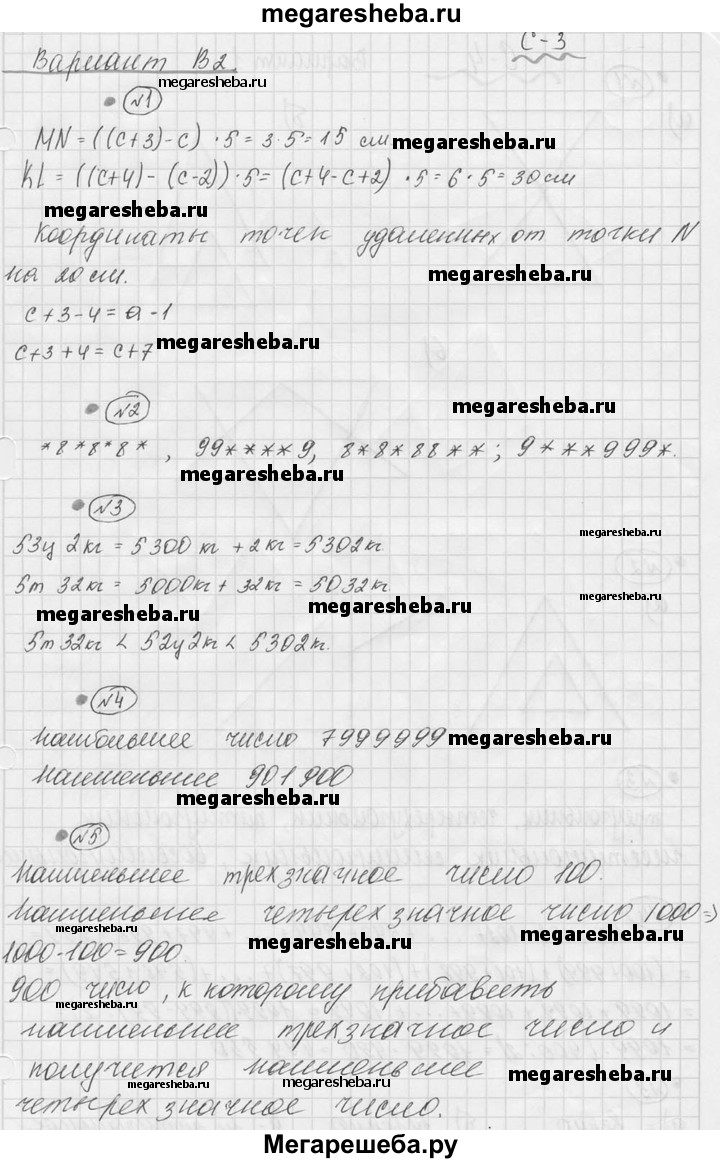 megaresheba.ru
С-3
Вариант В2
megaresheba.ru
№1
MN = ((c+3)-c) · 5 = 3 · 5 = 15 см megaresheba.ru
KL = ((c+4) - (c-2)) · 5 = (c+4-c+2) · 5 = 6 · 5 = 30 см
megaresheba.ru
Координаты точек удаленных от точки N
на 20 см. megaresheba.ru
c + 3 - 4 = c - 1
c + 3 + 4 = c + 7 megaresheba.ru
megaresheba.ru
№2
*8*8*8*, 99****9, 8*8*88**; 9***999*.
megaresheba.ru
№3
megaresheba.ru
53ц 2кг = 5300 кг + 2кг = 5302кг
5т 32кг = 5000кг + 32кг = 5032кг.
megaresheba.ru megaresheba.ru megaresheba.ru
5т 32кг < 52ц 2кг < 5302кг.
№4
наибольшее число 7999999 megaresheba.ru
наименьшее 901900
megaresheba.ru
№5
Наименьшее трехзначное число 100.
Наименьшее четырехзначное число 1000 ⇒
megaresheba.ru
1000-100 = 900. megaresheba.ru
900 число, к которому прибавить
megaresheba.ru
наименьшее трехзначное число и
получится наименьшее megaresheba.ru
megaresheba.ru megaresheba.ru
четырехзначное число.
Мегарешеба.ру